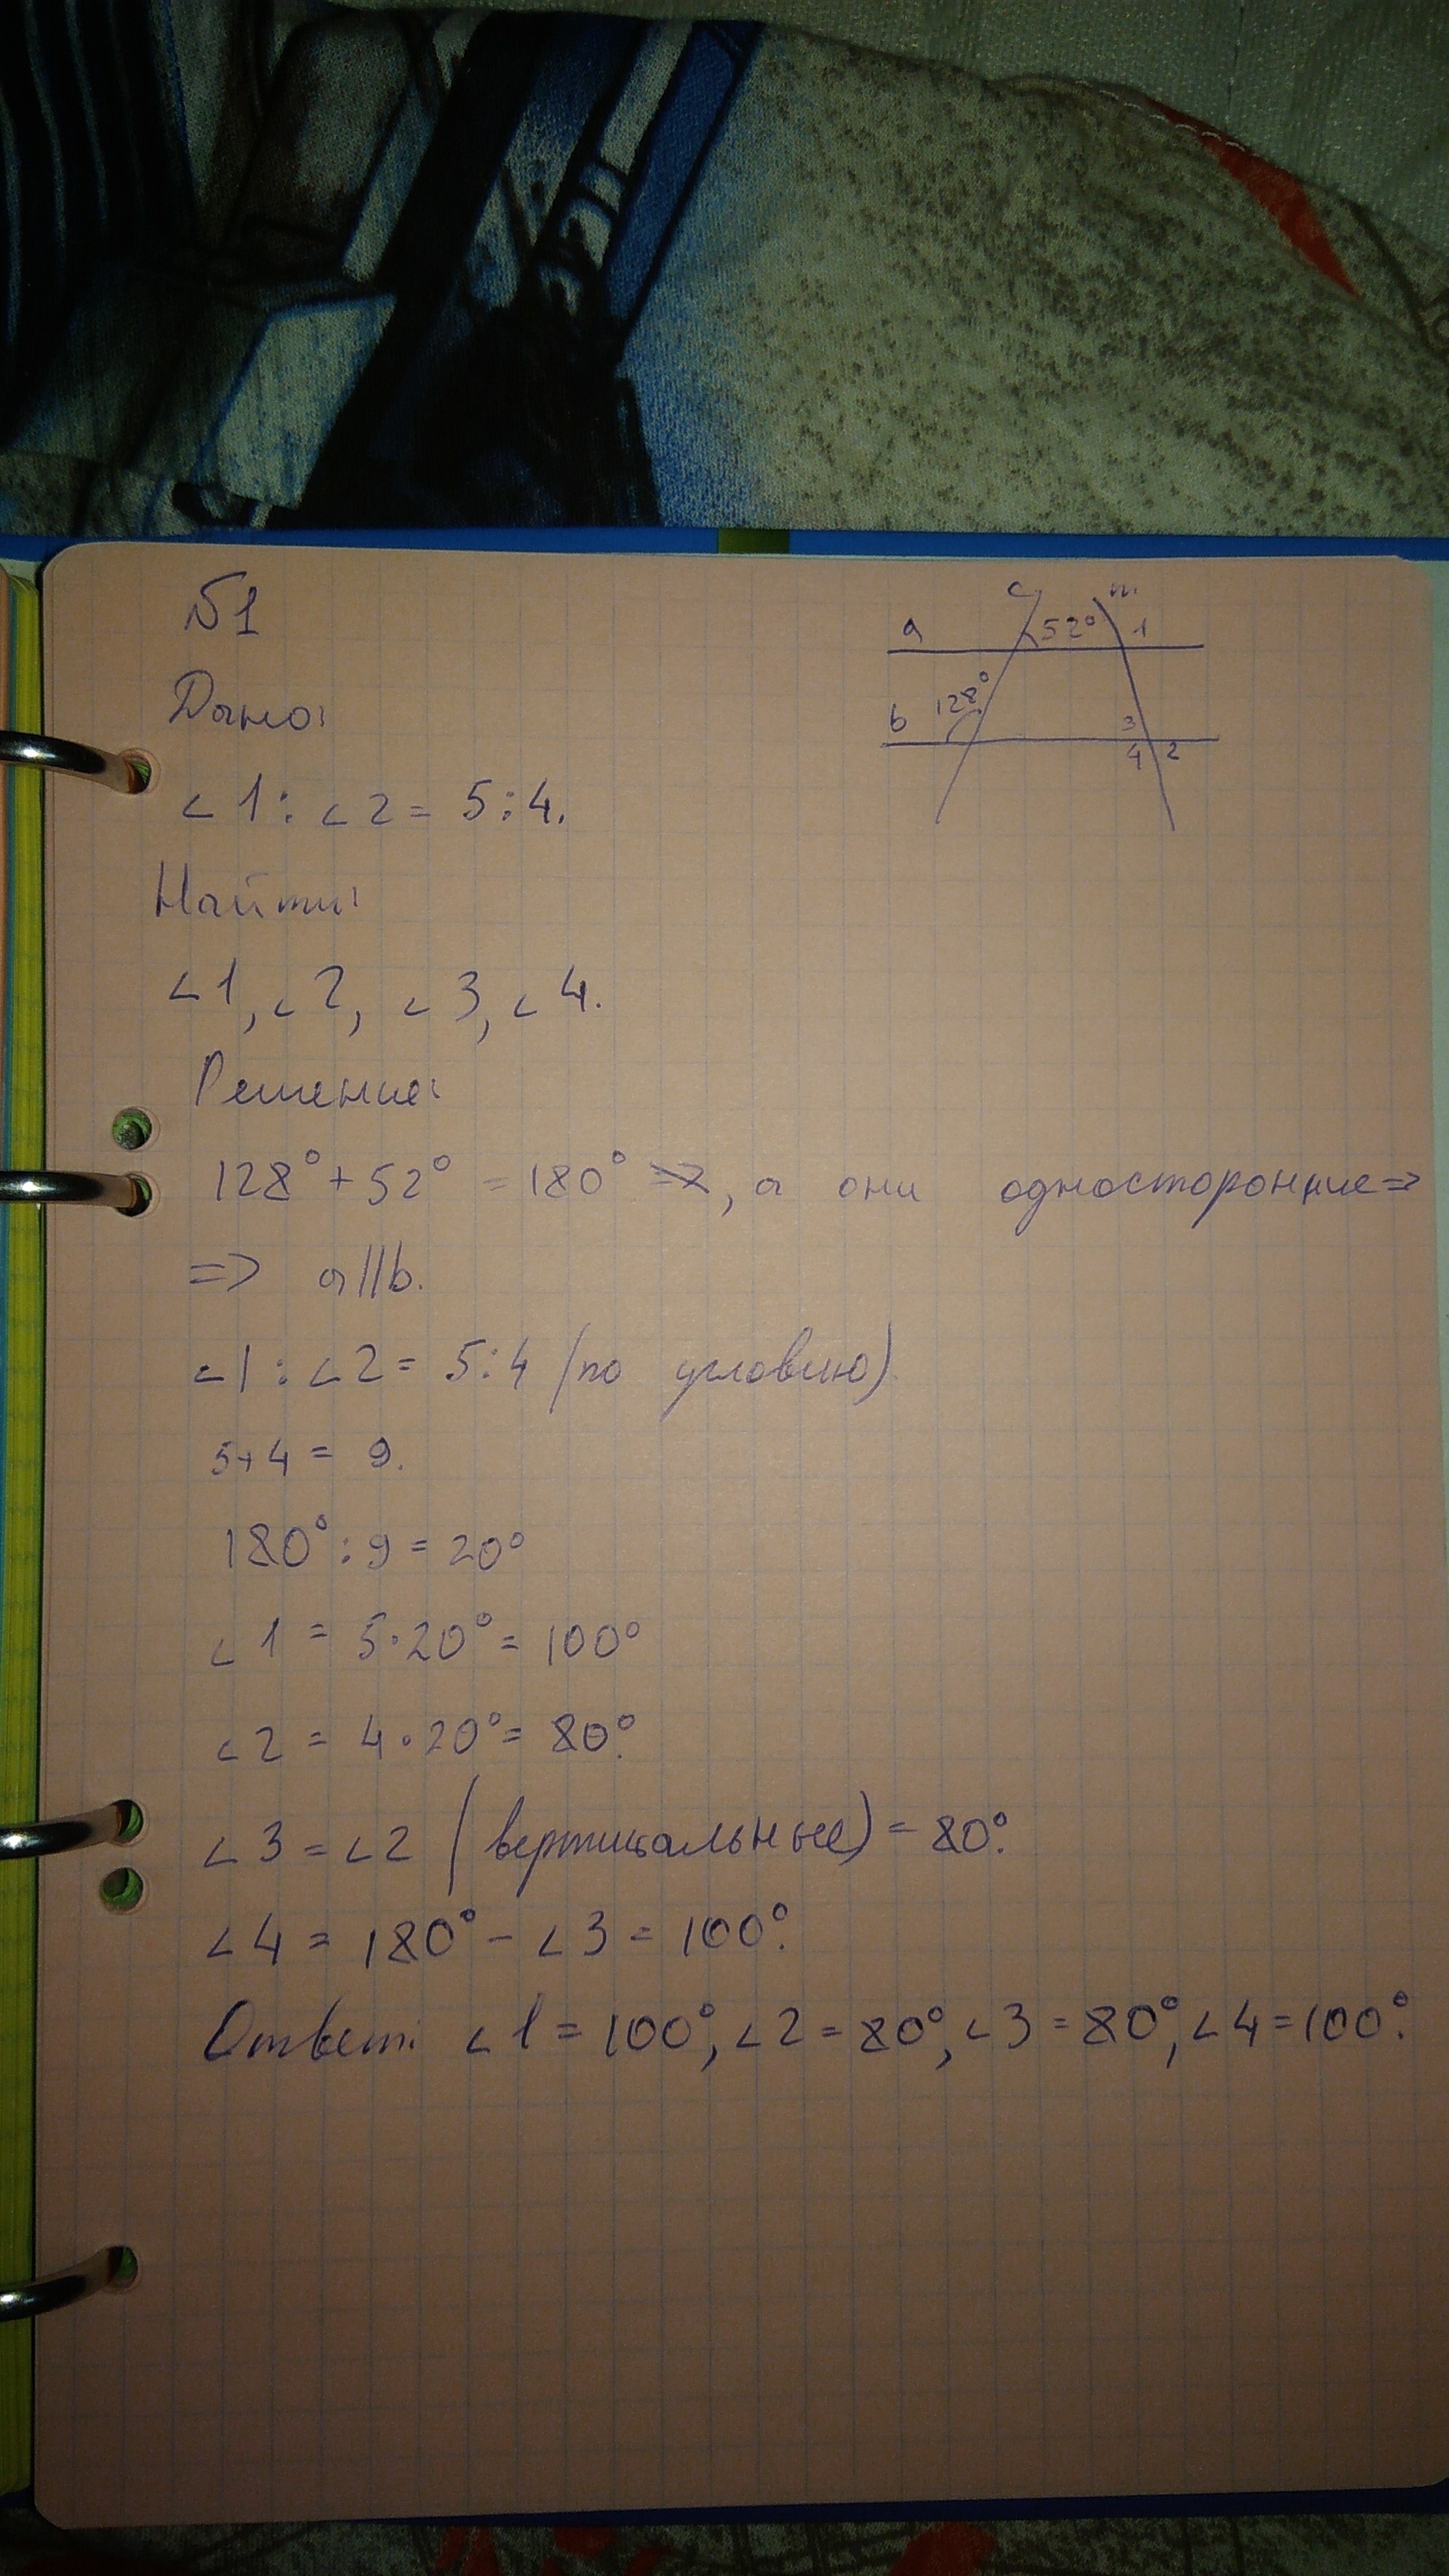 №1
c m
a 52° 1
128°
b 3
4 2
Дано:
∠1 : ∠2 = 5:4.
Найти:
∠1, ∠2, ∠3, ∠4.
Решение:
128° + 52° = 180° , а они односторонние =>
=> a||b.
∠1 : ∠2 = 5:4 (по условию)
5+4 = 9.
180° : 9 = 20°
∠1 = 5·20° = 100°
∠2 = 4·20° = 80°.
∠3 = ∠2 (вертикальные) = 80°.
∠4 = 180° - ∠3 = 100°.
Ответ: ∠1 = 100°, ∠2 = 80°, ∠3 = 80°, ∠4 = 100°.